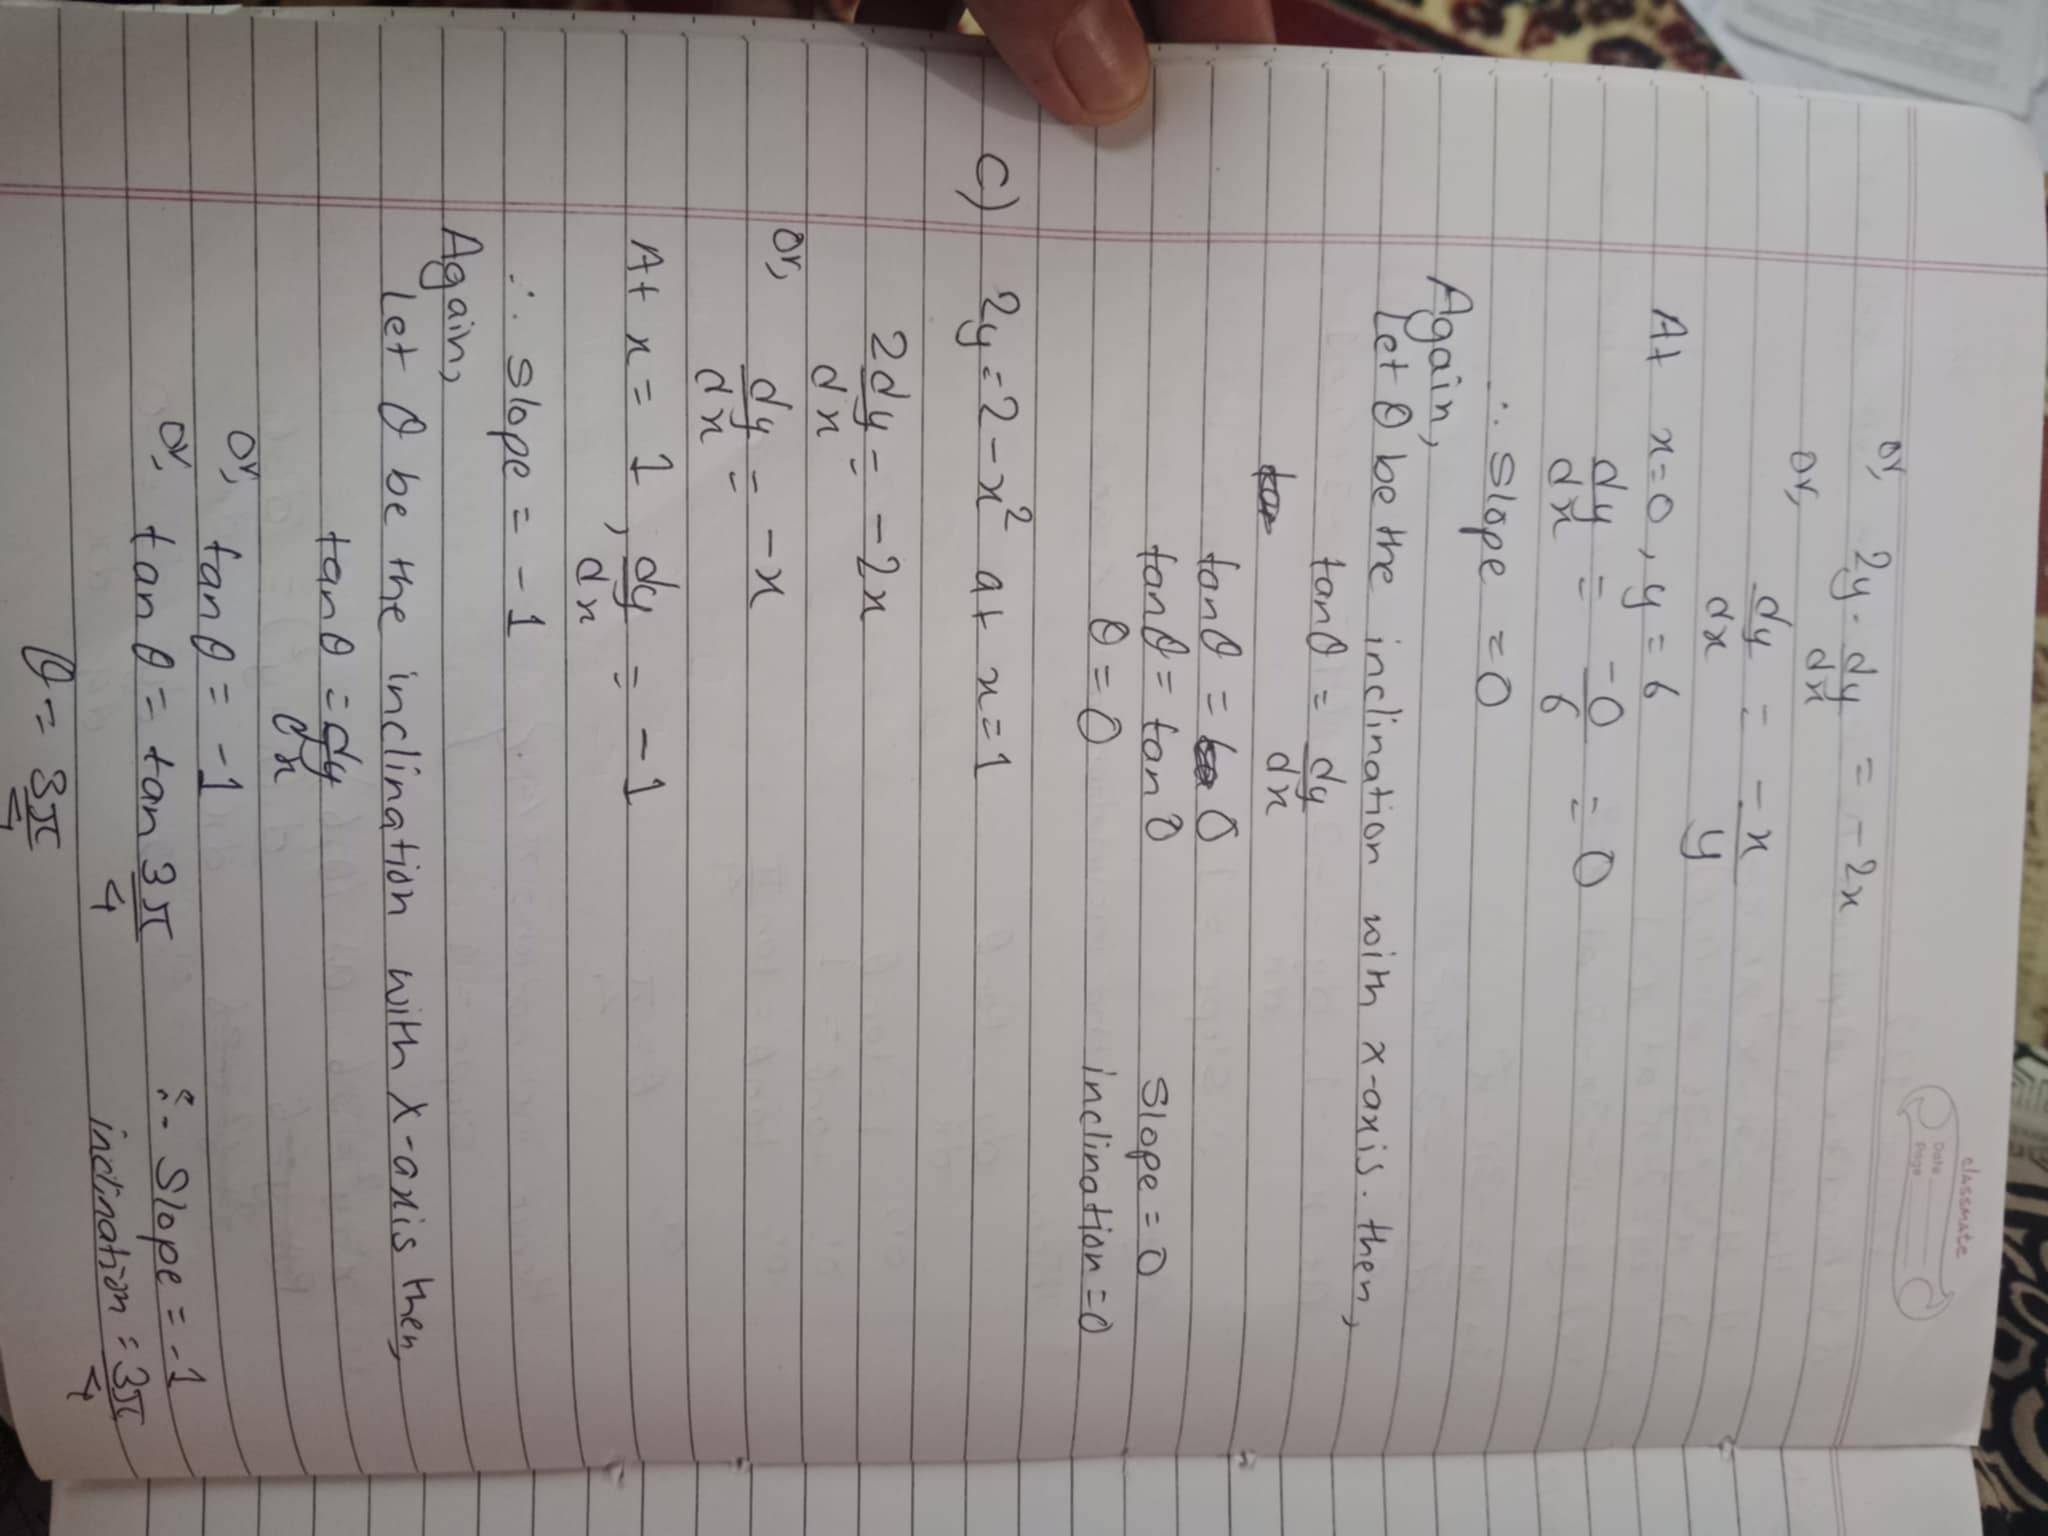 classmate
Date
Page
or, 2y. dy/dx = -2x
or, dy/dx = -x/y
At x=0, y=6
dy/dx = -0/6 = 0
∴ Slope = 0
Again,
Let θ be the inclination with x-axis. then,
tanθ = dy/dx
tanθ = 0
tanθ = tan 0 Slope = 0
θ = 0 inclination = 0
c) 2y = 2 - x² at x = 1
2dy/dx = -2x
or, dy/dx = -x
At x = 1, dy/dx = -1
∴ Slope = -1
Again,
Let θ be the inclination with x-axis then,
tanθ = dy/dx
or, tanθ = -1
or, tanθ = tan 3π/4 ∴ Slope = -1
θ = 3π/4 inclination = 3π/4